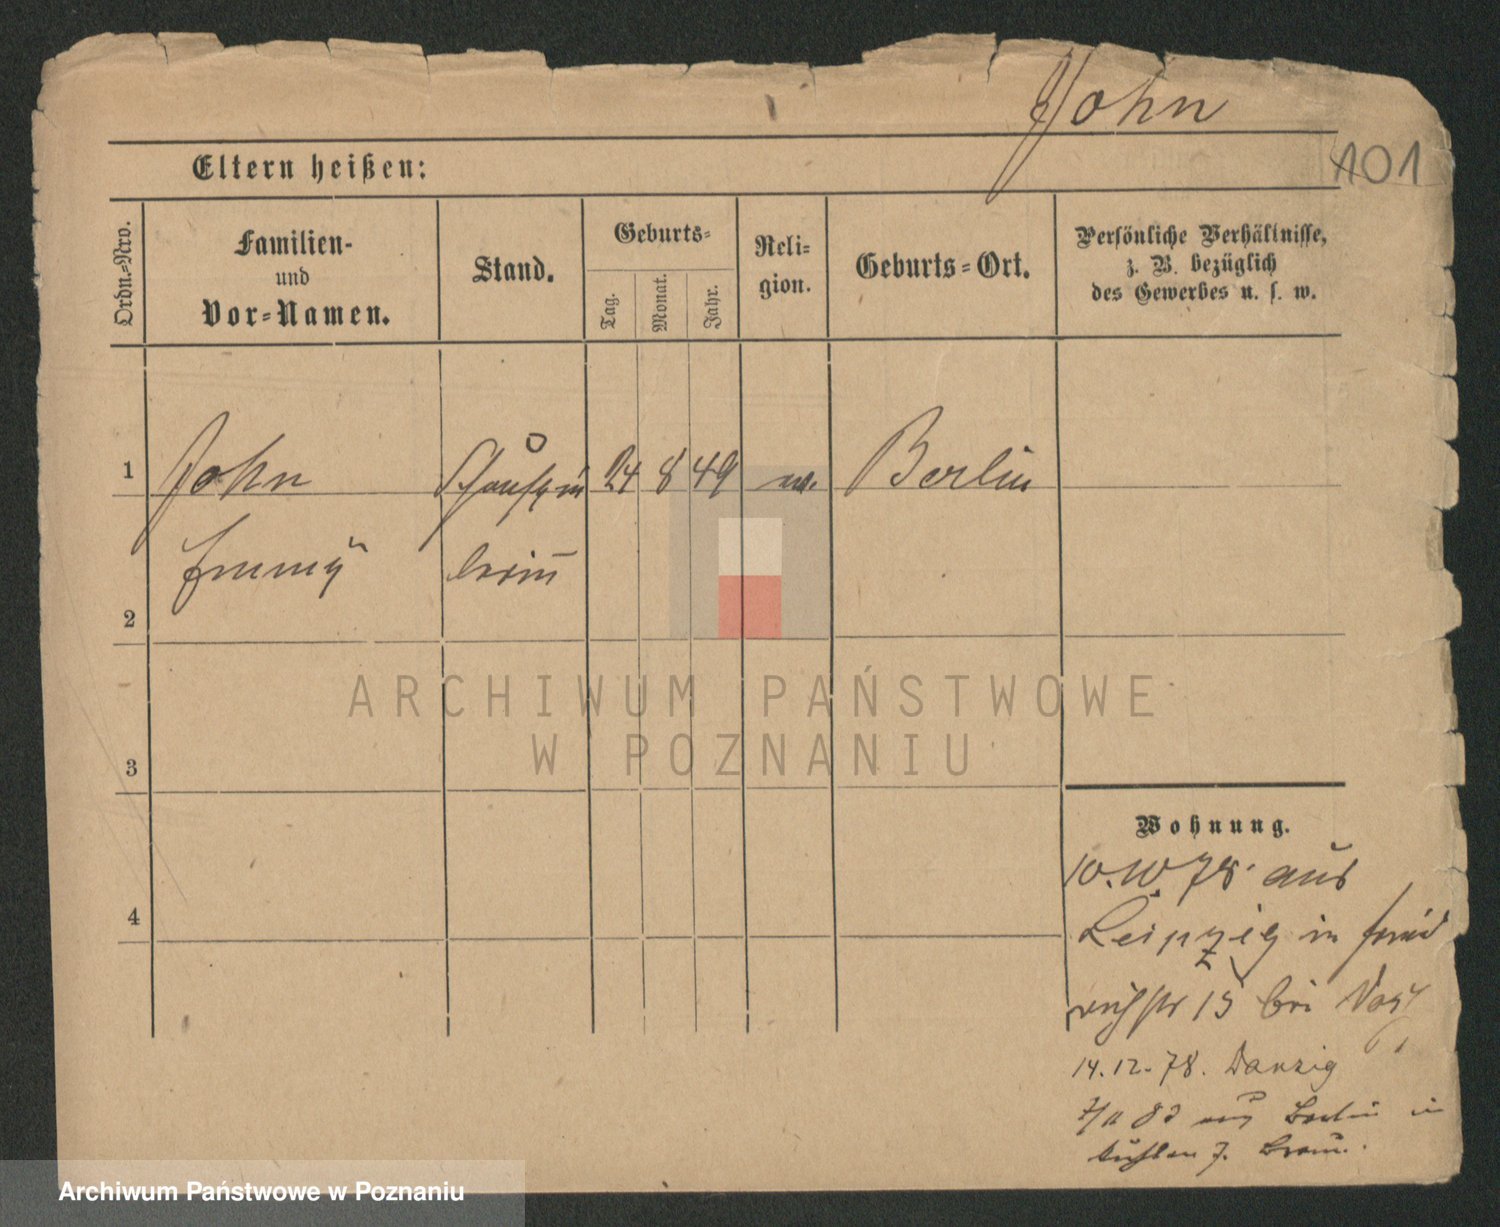 John
101
Eltern heißen:
Ordn.-Nro.
Familien-
und
Vor-Namen.
Stand.
Geburts-
Tag.
Monat.
Jahr.
Reli-
gion.
Geburts-Ort.
Persönliche Verhältnisse,
z. B. bezüglich
des Gewerbes u. s. w.
1 John Schauspie 24 8 49 ev. Berlin
Emmy lerin
2
3
4
Wohnung.
10.10.78 aus
Leipzig in Fried
richstr 15 bei
14.12.78. Danzig
Berlin in
ARCHIWUM PAŃSTWOWE
W POZNANIU
Archiwum Państwowe w Poznaniu